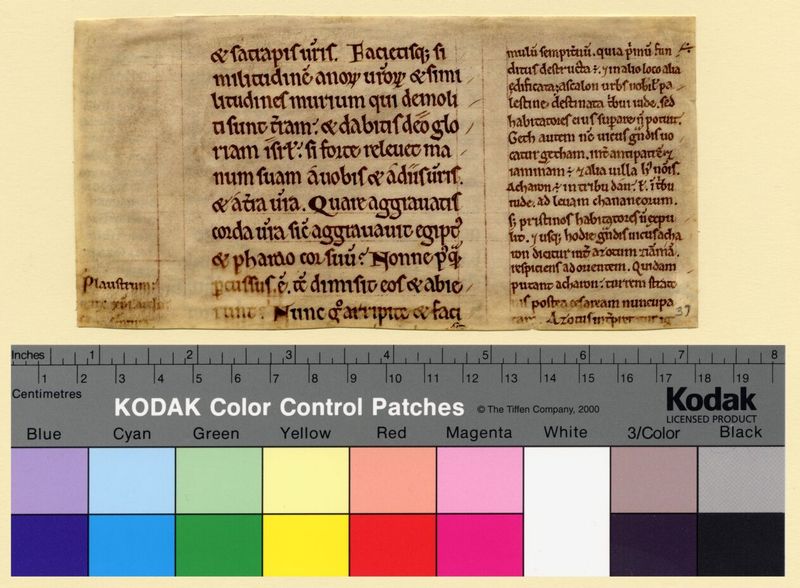 & satrapis ur̃is. Facietisq; si
militudinē anoꝝ ur̃oꝝ & simi
litudines murium qui demoli
ti sunt t̃ram. & dabitis dēo glo
riam isr̃l. si forte releuet ma
num suam a uobis & a diis ur̃is.
& a t̃ra ur̃a. Quare aggrauatis
corda ur̃a sic̃ aggrauauit egipt᷒
& pharao cor suū. Nonne
ē. dimisit eos & abie
Nunc arripite & faci
Plaustrum.
multi sempit̃ni. quia p̃mū fun
ditus destructa ÷. ⁊ in alio loco alia
edificata; ascalon urbs nobil̃ pa
lestine destinata iude. sed
habitatores eius potuit.
Geth autem uicus
catur gettham. antipatrē ⁊
iamniam ÷ ⁊ alia uilla
Acharon ÷ in tribu dan.
iude. ad leuam chananeorum.
s; pristinos habitatores ñ cepu
lit. ⁊ usq; hodie uicus acha
ron dicitur int̃ azotum
respiciens ad orientem. Quidam
putant acharon ÷ turrem strato
is postea cesaream nuncupa
Azotus
37
Inches 1 2 3 4 5 6 7 8
1 2 3 4 5 6 7 8 9 10 11 12 13 14 15 16 17 18 19
Centimetres
KODAK Color Control Patches © The Tiffen Company, 2000
Kodak
LICENSED PRODUCT
Blue Cyan Green Yellow Red Magenta White 3/Color Black